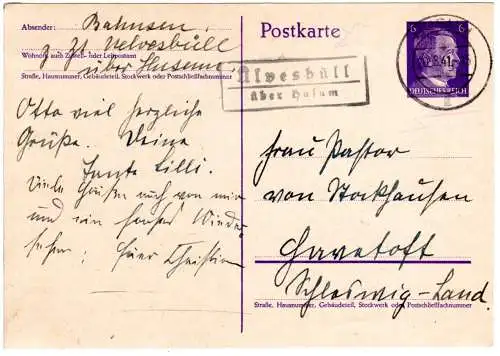 Absender: Bahnsen
z. Zt. Uelvesbüll
Wohnort, auch Zustell- oder Leitpostamt
über Husum
Straße, Hausnummer, Gebäudeteil, Stockwerk oder Postschließfachnummer
Otto viel herzliche
Grüße. Deine
Tante Lilli.
Viele Grüße auch von mir
und ein frohes Wieder-
sehen! Euer Christian
Postkarte
6 6
DEUTSCHES REICH
.8.41
Ülvesbüll
über Husum
Frau Pastor
von Stockhausen
Havetoft
Schleswig-Land.
Straße, Hausnummer, Gebäudeteil, Stockwerk oder Postschließfachnummer